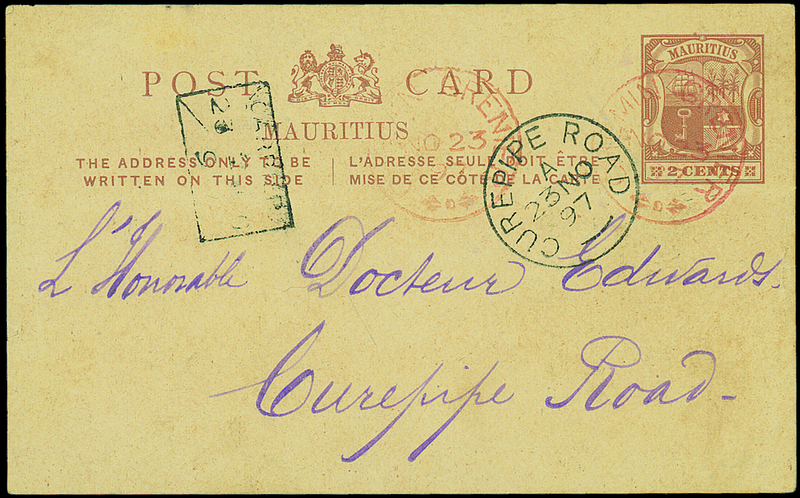 POST CARD
MAURITIUS
THE ADDRESS ONLY TO BE
WRITTEN ON THIS SIDE
L'ADRESSE SEULE DOIT ETRE
MISE DE CE CÔTÉ DE LA CARTE
MAURITIUS
2 CENTS
NO 23
CUREPIPE ROAD
A
23 NO
97
L'Honorable Docteur Edwards.
Curepipe Road-